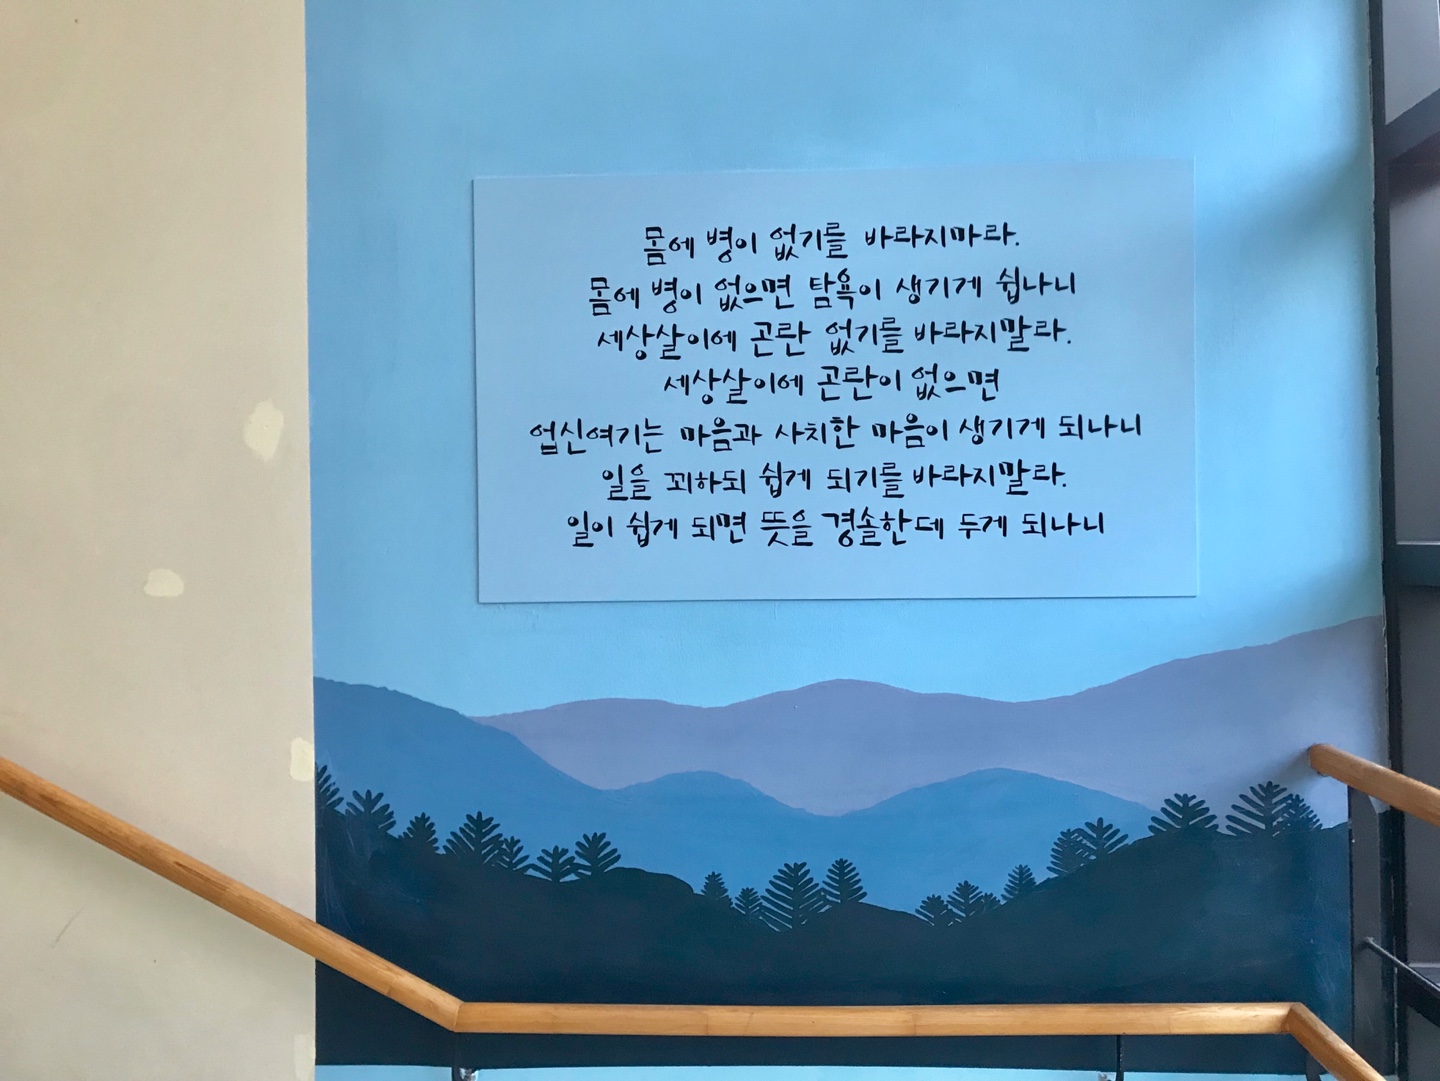 몸에 병이 없기를 바라지마라.
몸에 병이 없으면 탐욕이 생기게 쉽나니
세상살이에 곤란 없기를 바라지말라.
세상살이에 곤란이 없으면
업신여기는 마음과 사치한 마음이 생기게 되나니
일을 꾀하되 쉽게 되기를 바라지말라.
일이 쉽게 되면 뜻을 경솔한데 두게 되나니